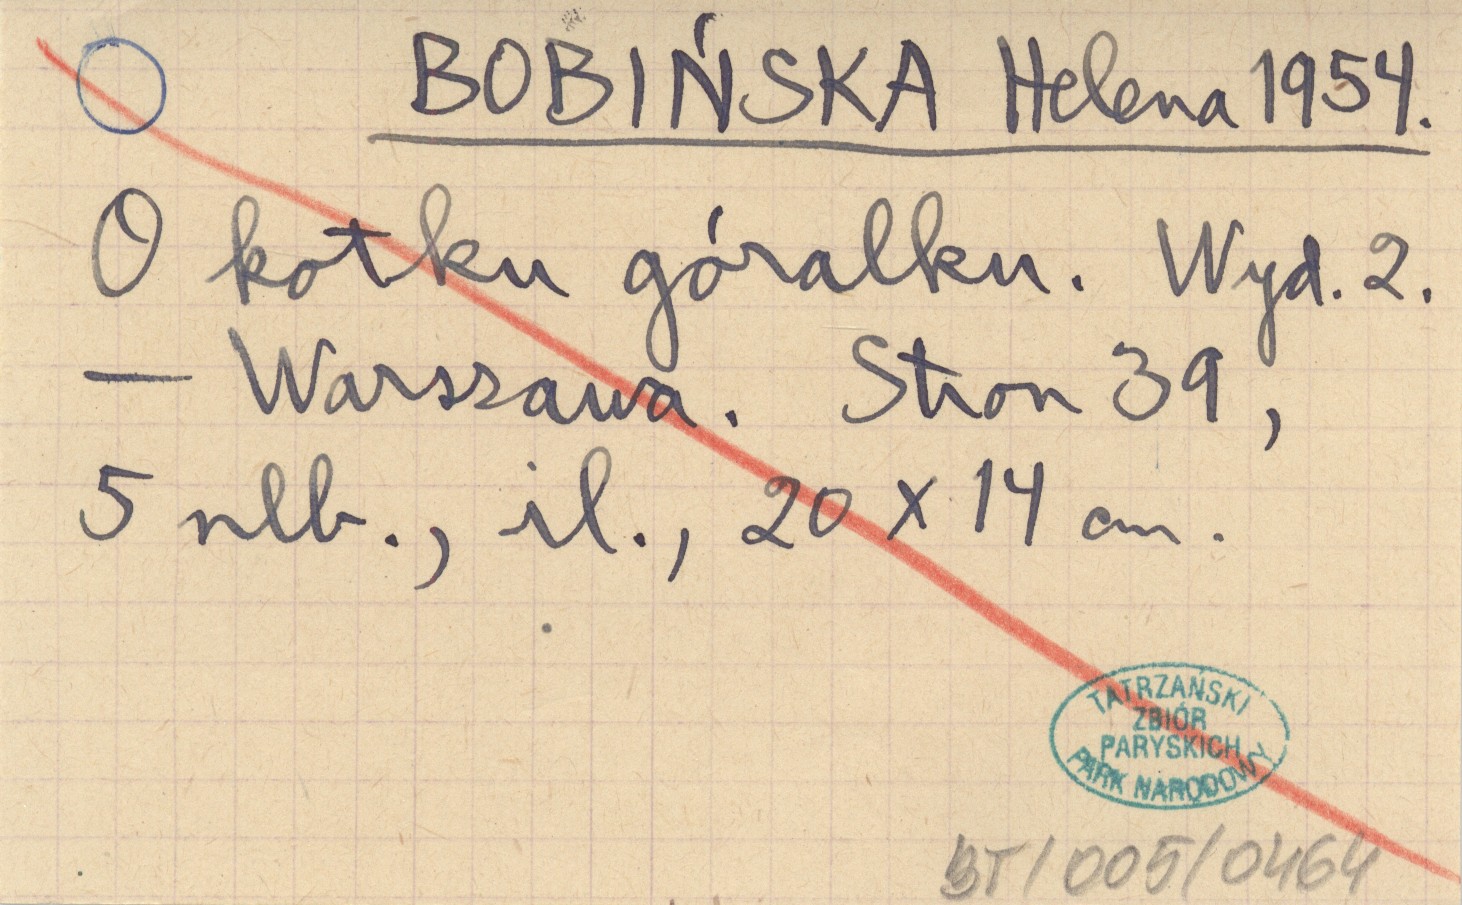 BOBIŃSKA Helena 1954.
O kotku góralku. Wyd. 2.
— Warszawa. Stron 39,
5 nlb., il., 20 x 14 cm.
TATRZAŃSKI
ZBIÓR
PARYSKICH
PARK NARODOWY
BT/005/0464